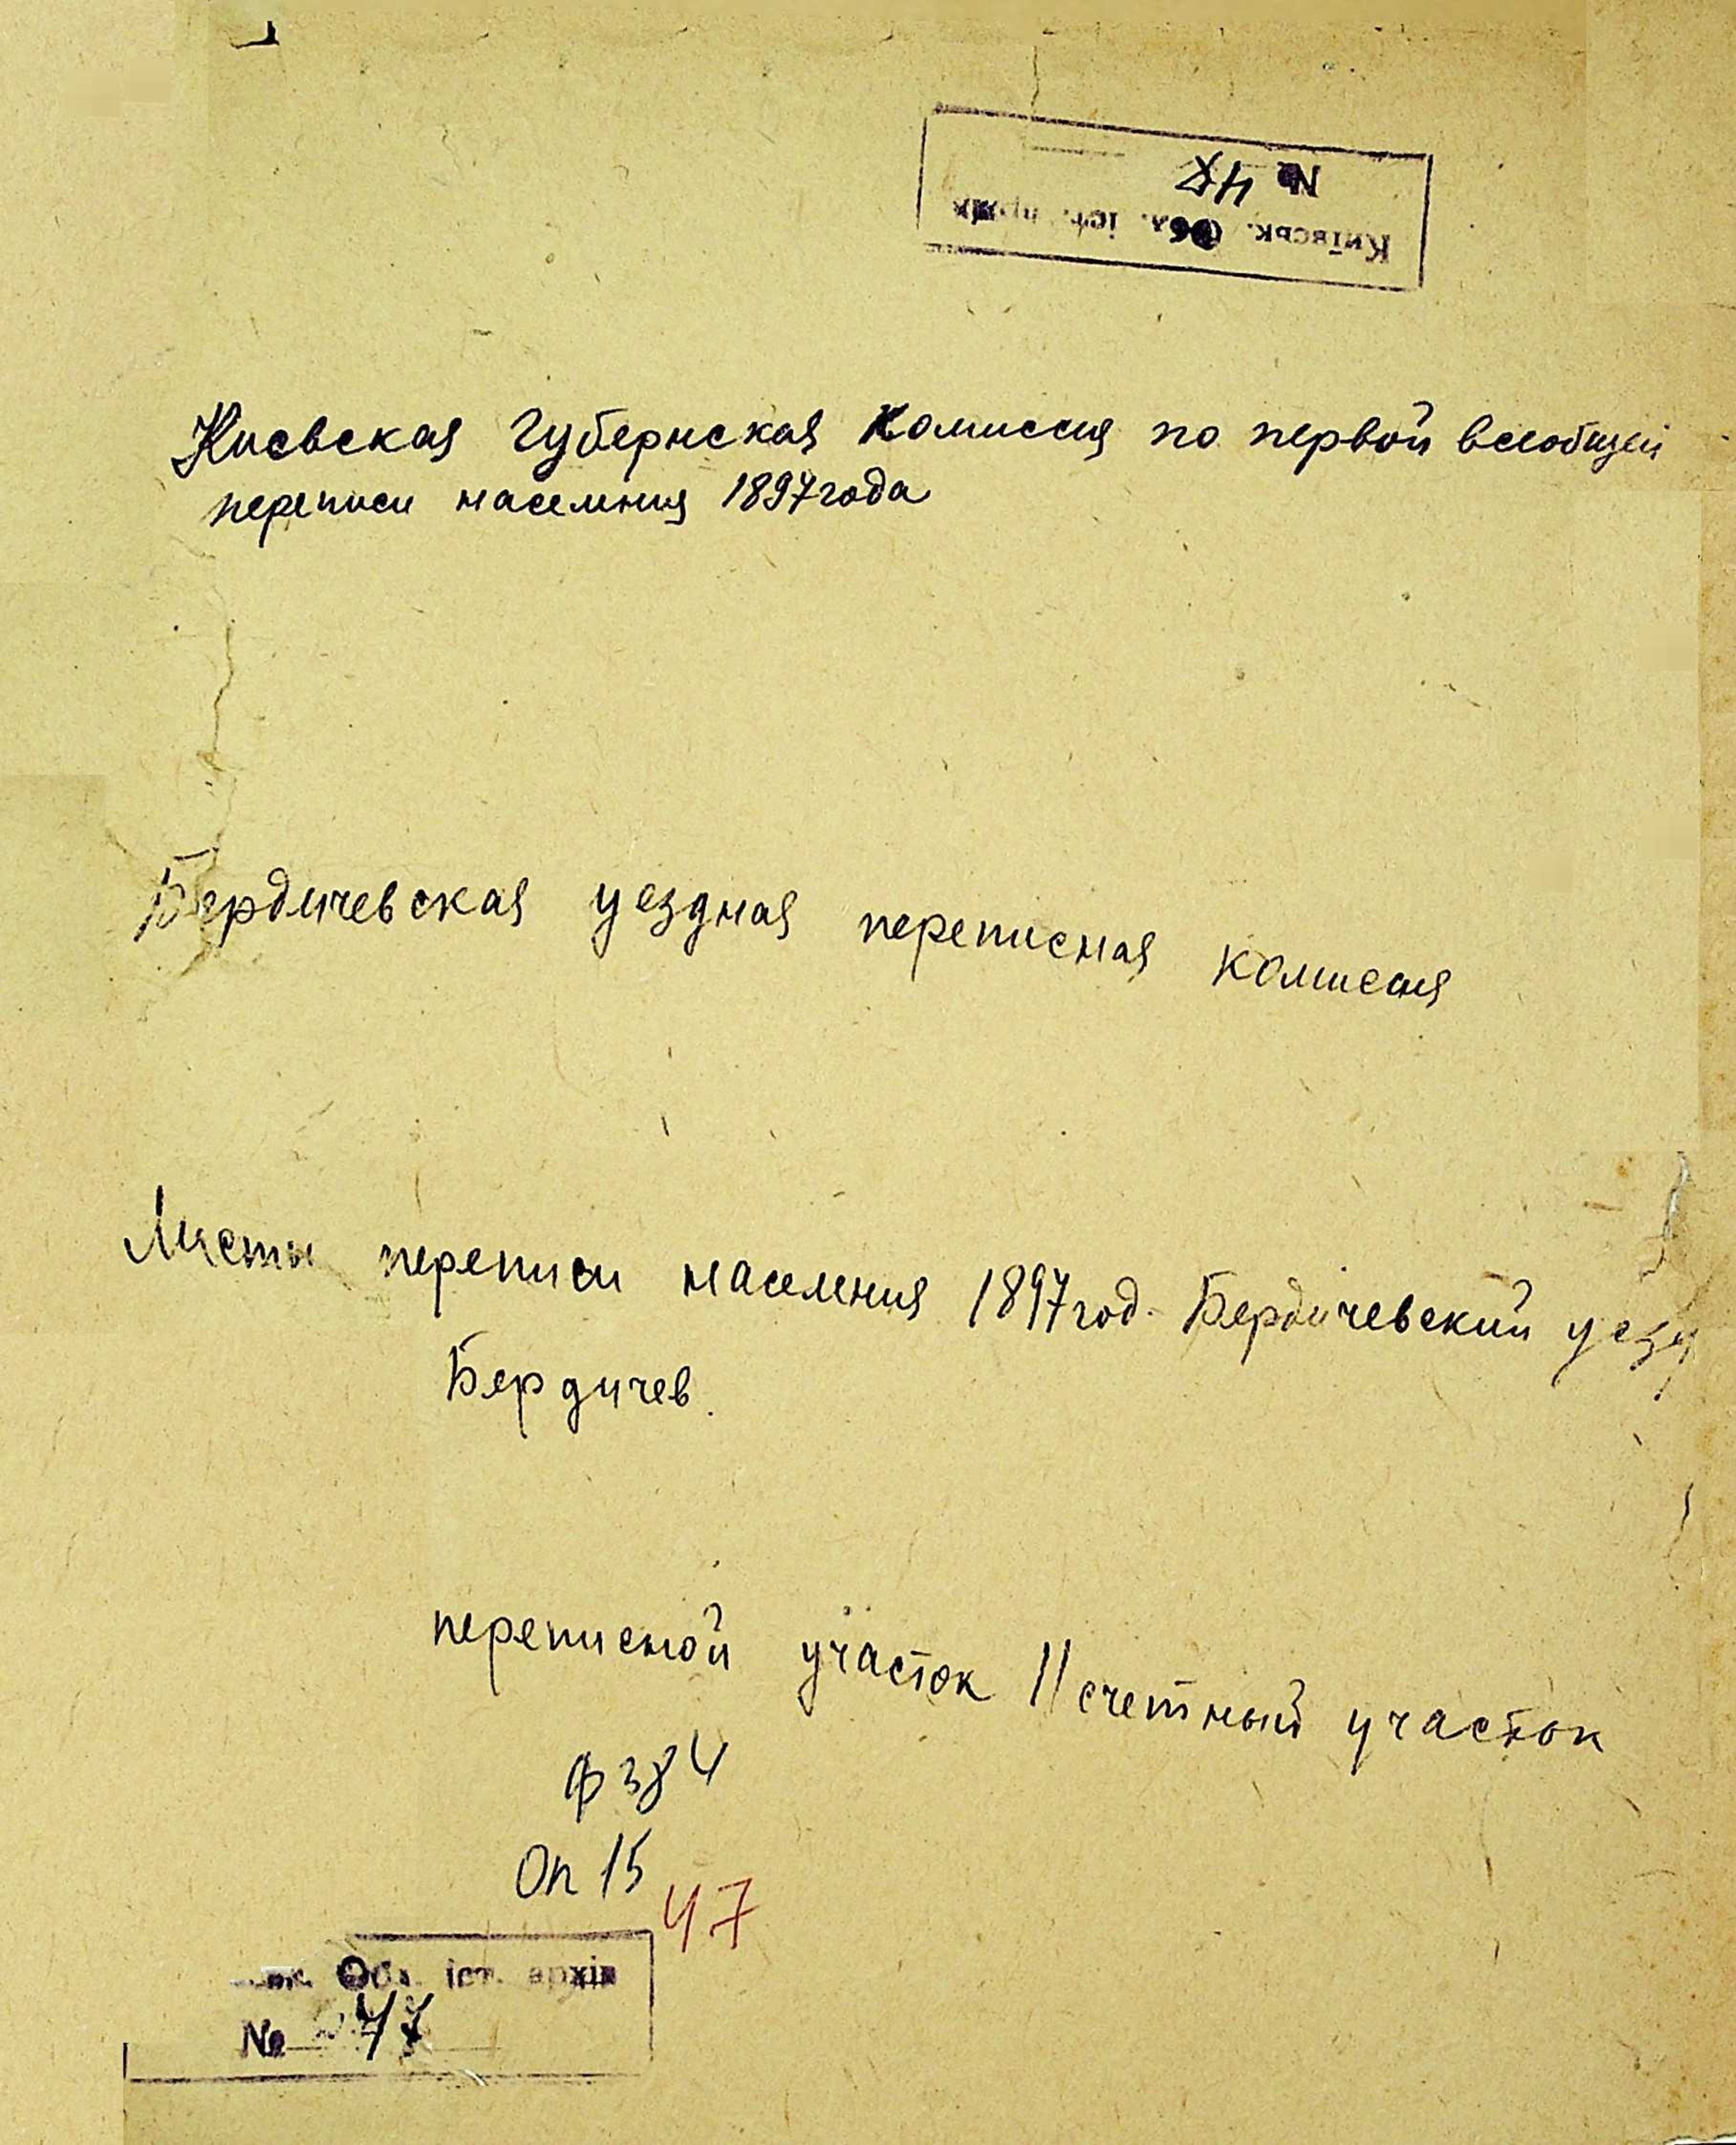 № 47
Київськ. Обл. іст. архів
Киевская Губернская Комиссия по первой всеобщей
переписи населения 1897 года
Бердичевская уездная переписная комиссия
Листы переписи населения 1897 год. Бердичевский уезд
Бердичев.
переписной участок 11 счетный участок
Ф 384
Оп 15
47
Обл. іст. архів
№ 47